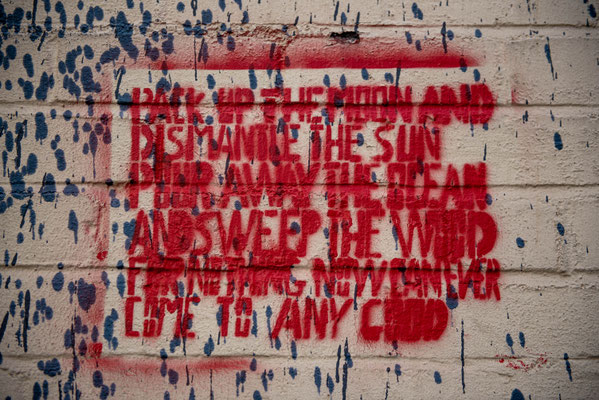 PACK UP THE MOON AND
DISMANTLE THE SUN
POUR AWAY THE OCEAN
AND SWEEP THE WOOD
FOR NOTHING NOW CAN EVER
COME TO ANY GOOD